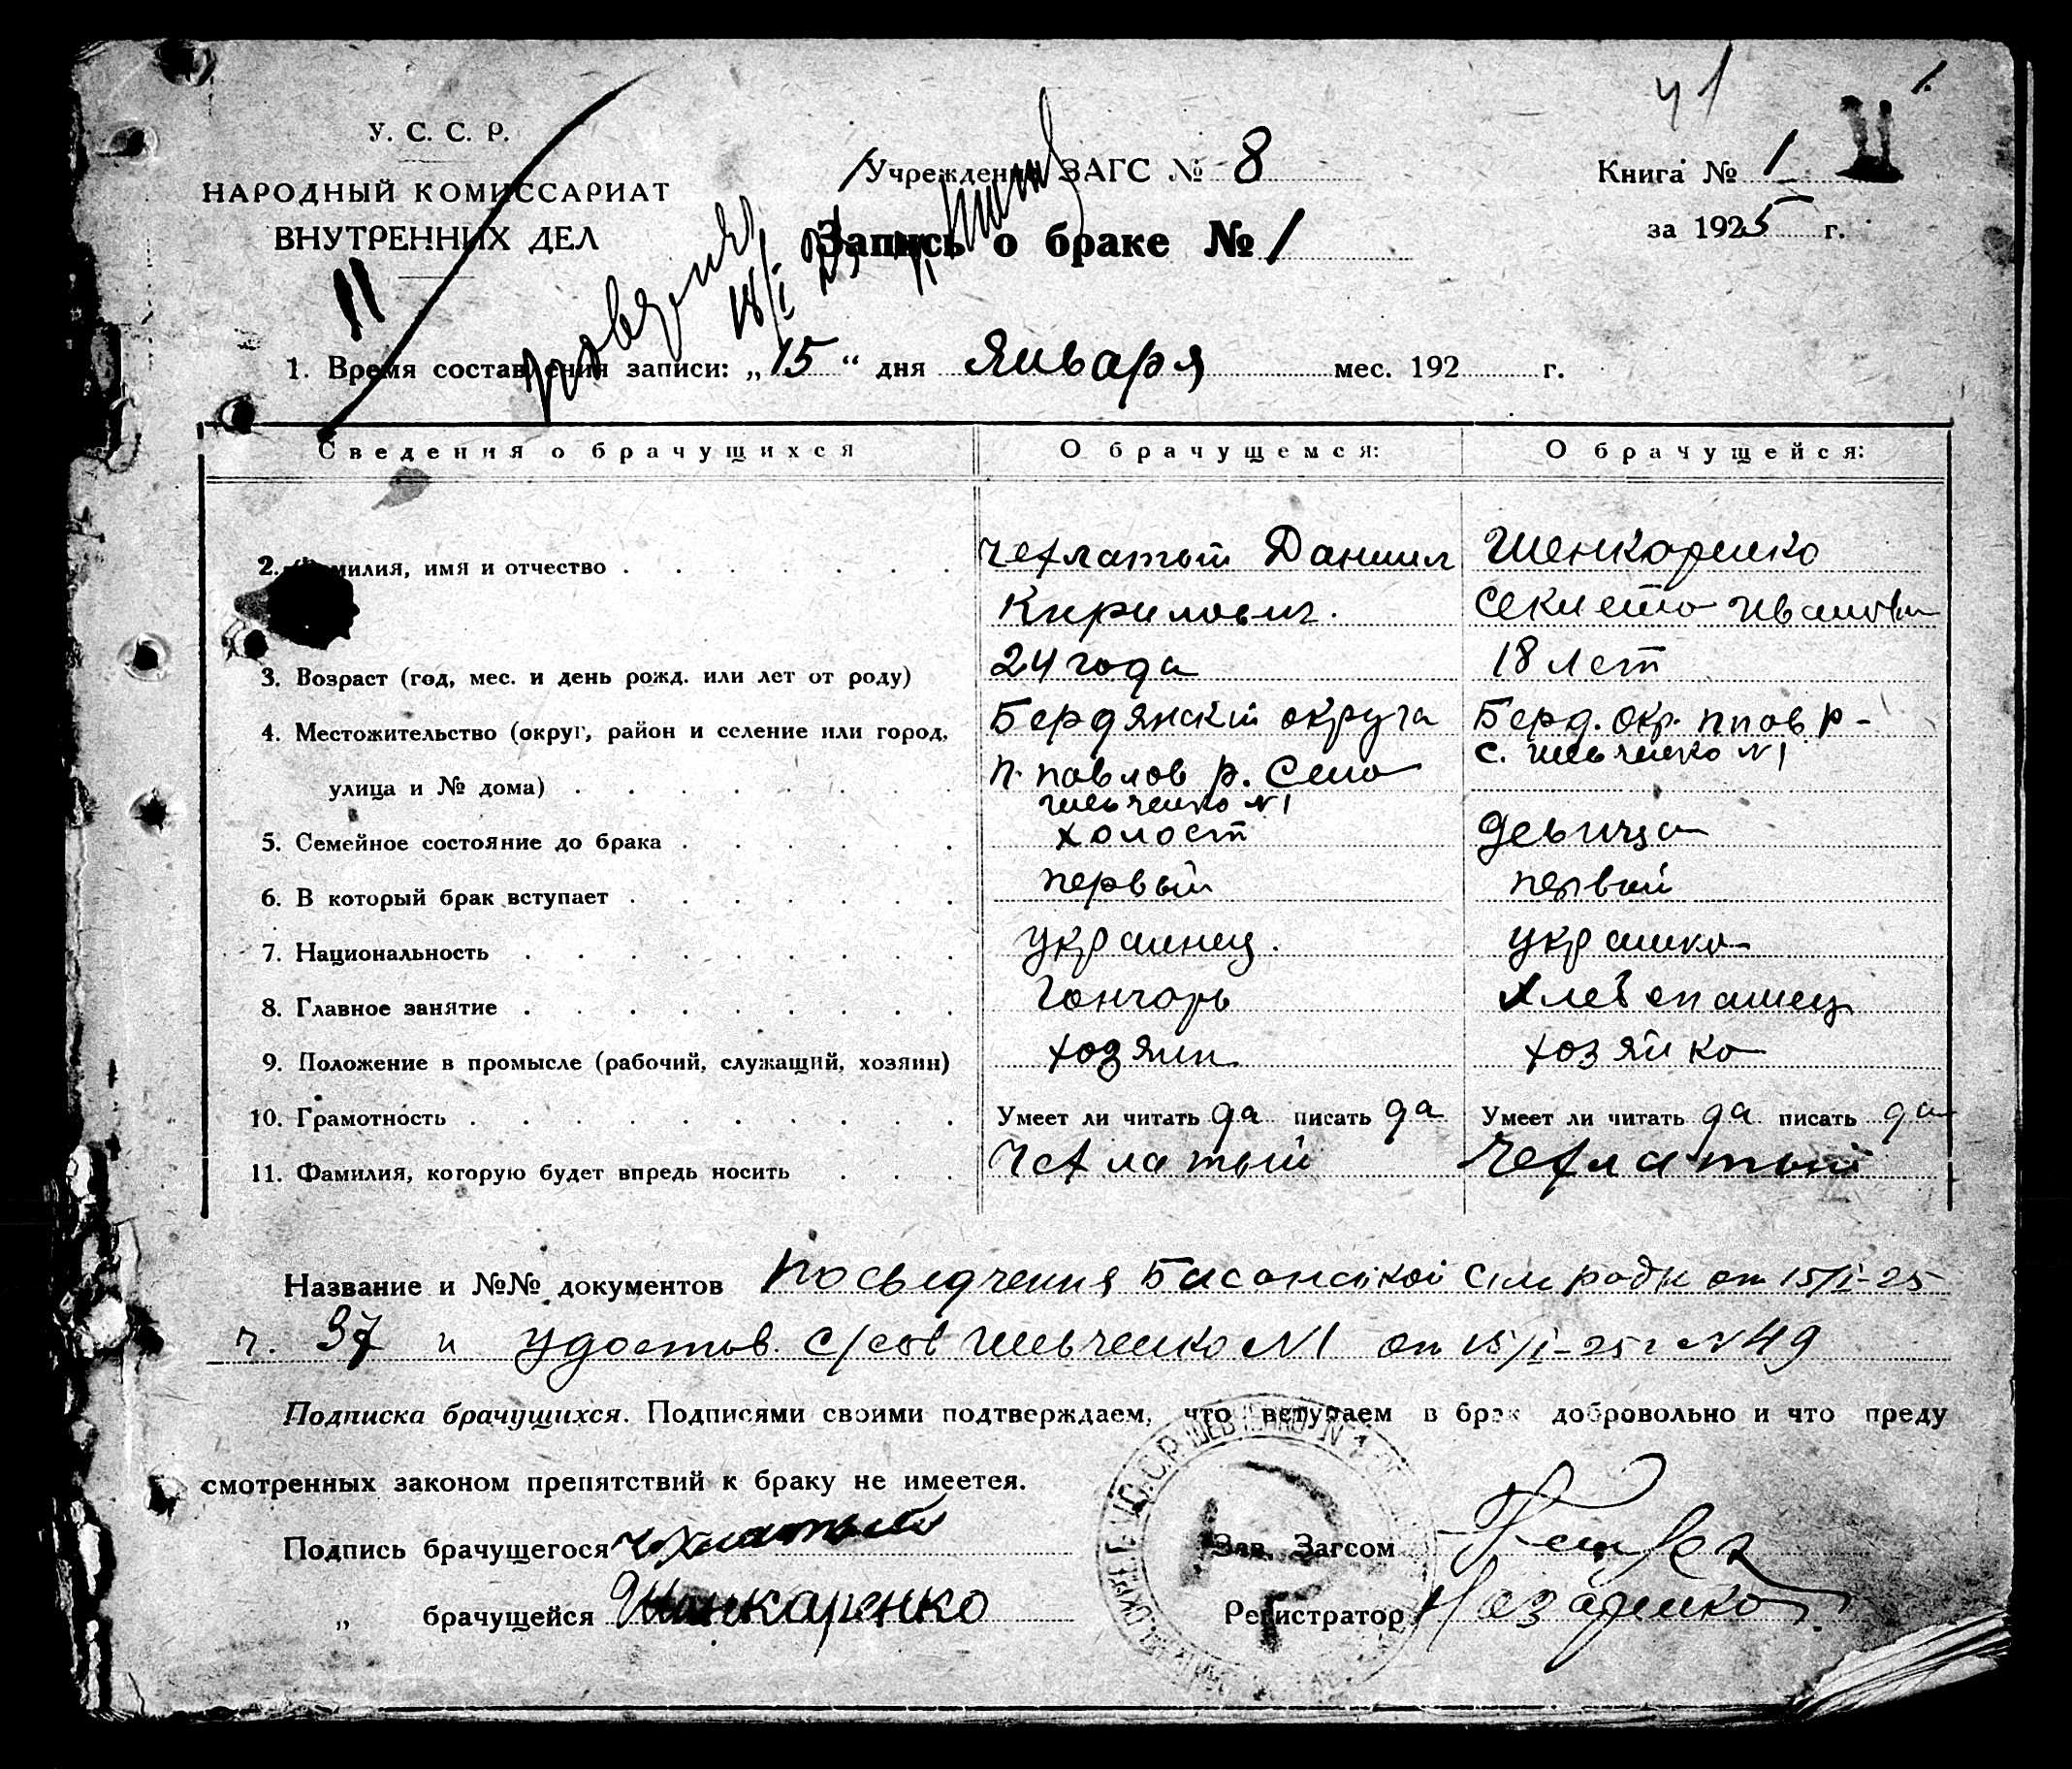 ч1
1.
У. С. С. Р.
НАРОДНЫЙ КОМИССАРИАТ
ВНУТРЕННИХ ДЕЛ
Учреждение ЗАГС № 8
Запись о браке № 1
Книга № 1
за 1925 г.
11
18/I
1. Время составления записи: „15“ дня Января мес. 192 г.
Сведения о брачущихся О брачущемся: О брачущейся:
2. Фамилия, имя и отчество Чехлатый Даниил Шенкаренко
Кирилович. Ивановн
3. Возраст (год, мес. и день рожд. или лет от роду) 24 года 18 лет
4. Местожительство (округ, район и селение или город, Бердянскій округа Берд. окр. ппов р-
улица и № дома) п. павлов р. Село с. Шевченко N1
Шевченко N1
5. Семейное состояние до брака холост девица
6. В который брак вступает первый первый
7. Национальность украинец. украинка
8. Главное занятие Гончарь Хлебопашец
9. Положение в промысле (рабочий, служащий, хозяин) хозяин хозяйка
10. Грамотность Умеет ли читать да писать да Умеет ли читать да писать да
11. Фамилия, которую будет впредь носить Чехлатый Чехлатый
Название и №№ документов Посвидчення Басанської Сільради от 15/I-25
ч. 37 и удостов. с/сов Шевченко N1 от 15/I-25г N49
Подписка брачущихся. Подписями своими подтверждаем, что вступаем в брак добровольно и что преду
смотренных законом препятствий к браку не имеется.
Подпись брачущегося Чехлатый Зав. Загсом
„ брачущейся Шинкаренко Регистратор Назаренко